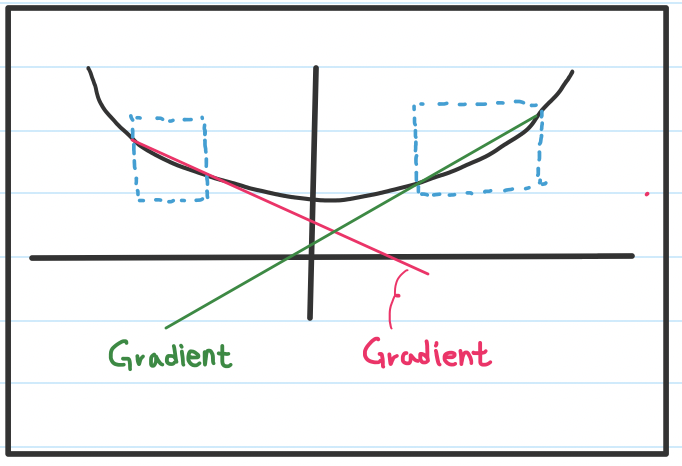 Gradient
Gradient